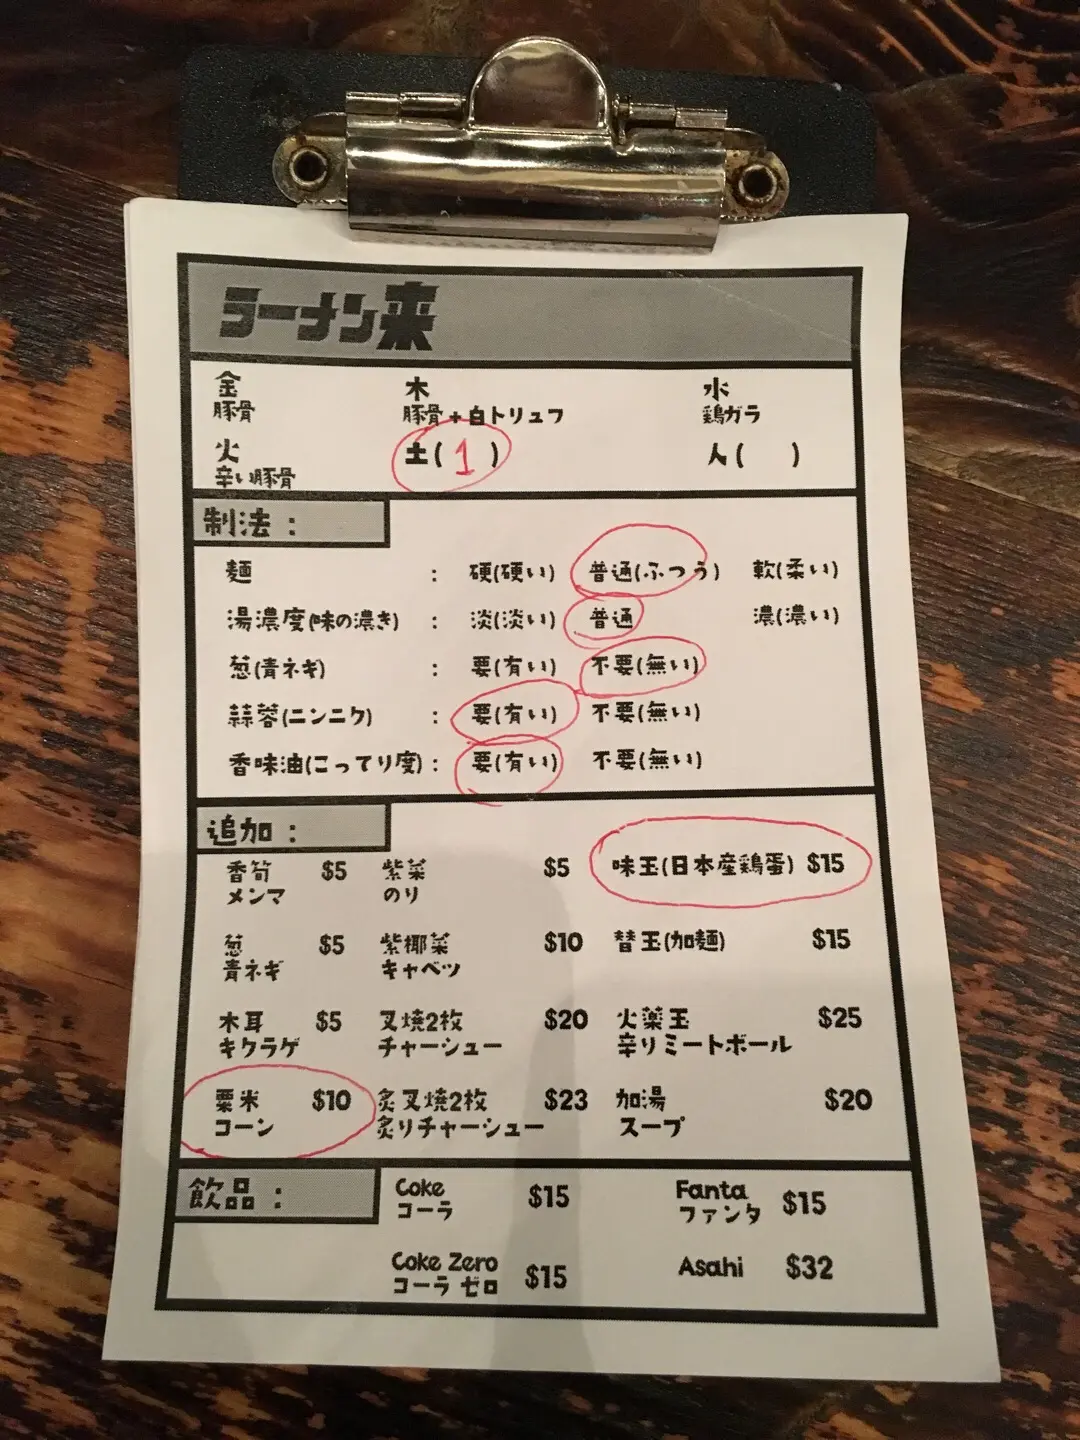 ラーメン来
金 木 水
豚骨 豚骨+白トリュフ 鶏ガラ
火 土( 1 ) 人( )
辛い豚骨
制法 :
麺 : 硬(硬い) 普通(ふつう) 軟(柔い)
湯濃度(味の濃き) : 淡(淡い) 普通 濃(濃い)
葱(青ネギ) : 要(有い) 不要(無い)
蒜蓉(ニンニク) : 要(有い) 不要(無い)
香味油(こってり度) : 要(有い) 不要(無い)
追加 :
香筍 $5 紫菜 $5 味玉(日本産鶏蛋) $15
メンマ のり
葱 $5 紫椰菜 $10 替玉(加麺) $15
青ネギ キャベツ
木耳 $5 叉焼2枚 $20 火薬玉 $25
キクラゲ チャーシュー 辛りミートボール
粟米 $10 炙叉焼2枚 $23 加湯 $20
コーン 炙りチャーシュー スープ
飲品 : Coke $15 Fanta $15
コーラ ファンタ
Coke Zero $15 Asahi $32
コーラ ゼロ